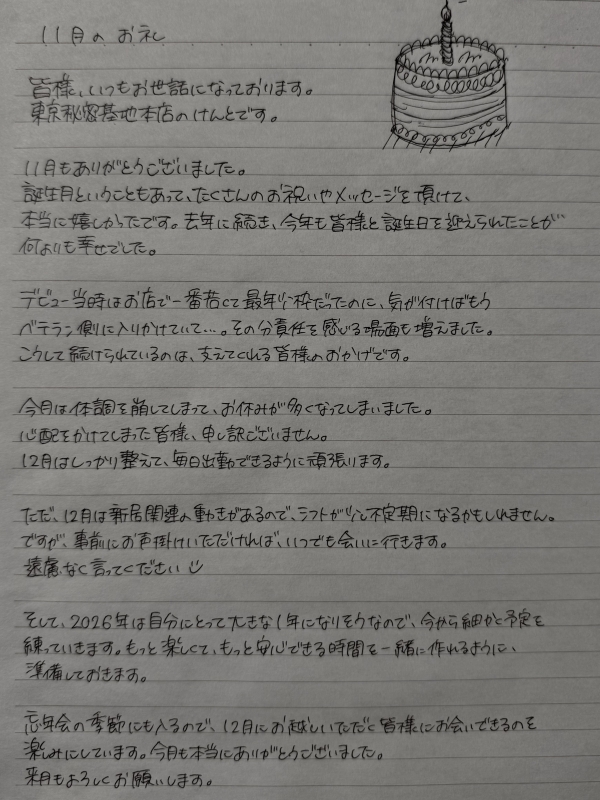 11月のお礼
皆様、いつもお世話になっております。
東京秘密基地本店のけんとです。
11月もありがとうございました。
誕生月ということもあって、たくさんのお祝いやメッセージを頂けて、
本当に嬉しかったです。去年に続き、今年も皆様と誕生日を迎えられたことが
何よりも幸せでした。
デビュー当時はお店で一番若くて最年少枠だったのに、気が付けばもう
ベテラン側に入りかけていて…。その分責任を感じる場面も増えました。
こうして続けられているのは、支えてくれる皆様のおかげです。
今月は体調を崩してしまって、お休みが多くなってしまいました。
心配をかけてしまった皆様、申し訳ございません。
12月はしっかり整えて、毎日出勤できるように頑張ります。
ただ、12月は新居関連の動きがあるので、シフトが少し不定期になるかもしれません。
ですが、事前にお声掛けいただければ、いつでも会いに行きます。
遠慮なく言ってください
そして、2026年は自分にとって大きな1年になりそうなので、今から細かく予定を
練っていきます。もっと楽しくて、もっと安心できる時間を一緒に作れるように、
準備しておきます。
忘年会の季節にも入るので、12月にお越しいただく皆様にお会いできるのを
楽しみにしています。今月も本当にありがとうございました。
来月もよろしくお願いします。